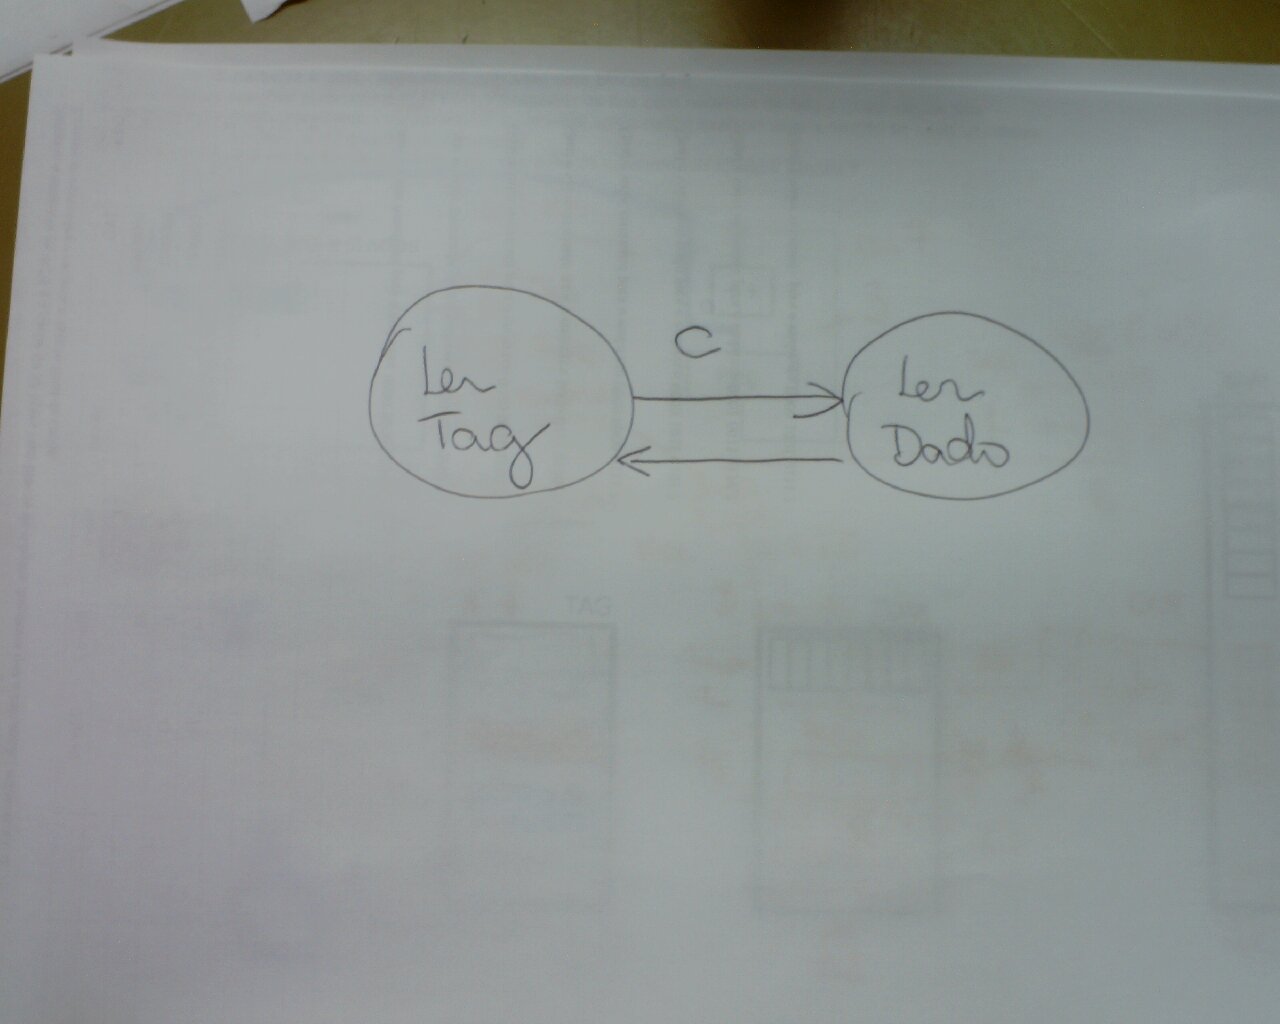 Ler
Tag
C
Ler
Dado
TAG